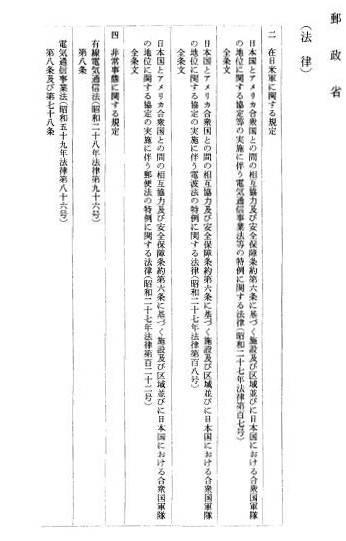 郵政省
(法律)
二 在日米軍に関する規定
日本国とアメリカ合衆国との間の相互協力及び安全保障条約第六条に基づく施設及び区域並びに日本国における合衆国軍隊
の地位に関する協定等の実施に伴う電気通信事業法等の特例に関する法律(昭和二十七年法律第百七号)
全条文
日本国とアメリカ合衆国との間の相互協力及び安全保障条約第六条に基づく施設及び区域並びに日本国における合衆国軍隊
の地位に関する協定の実施に伴う電波法の特例に関する法律(昭和二十七年法律第百八号)
全条文
日本国とアメリカ合衆国との間の相互協力及び安全保障条約第六条に基づく施設及び区域並びに日本国における合衆国軍隊
の地位に関する協定の実施に伴う郵便法の特例に関する法律(昭和二十七年法律第百二十二号)
全条文
四 非常事態に関する規定
有線電気通信法(昭和二十八年法律第九十六号)
第八条
電気通信事業法(昭和五十九年法律第八十六号)
第八条及び第七十八条